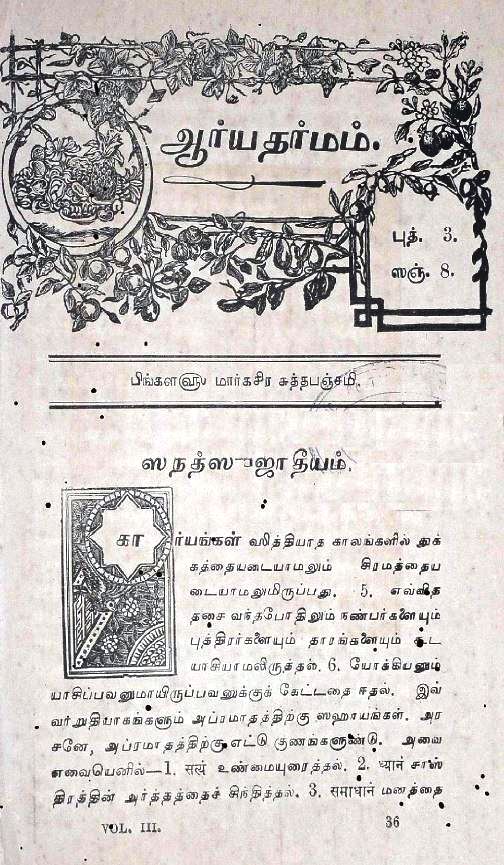 ஆர்யதர்மம்.
புத். 3.
ஸஞ். 8.
பிங்களளு மார்கசிர சுத்தபஞ்சமி.
ஸநத்ஸுஜாதீயம்.
கார்யங்கள் ஸித்தியாத காலங்களில் துக்
கத்தையடையாமலும் சிரமத்தைய
டையாமலுமிருப்பது. 5. எவ்வித
தசை வந்தபோதிலும் நண்பர்களையும்
புத்திரர்களையும் தாரங்களையும் கூட
யாசியாமலிருத்தல். 6. யோக்கியனும்
யாசிப்பவனுமாயிருப்பவனுக்குக் கேட்டதை ஈதல். இவ்
வர்றுதியாகங்களும் அப்ரமாதத்திற்கு ஸஹாயங்கள். அர
சனே, அப்ரமாதத்திற்கு எட்டு குணங்களுண்டு. அவை
எவையெனில்—1. सत्यं உண்மையுரைத்தல். 2. ध्यानं சாஸ்
திரத்தின் அர்த்தத்தைச் சிந்தித்தல். 3. समाधानं மனத்தை
VOL. III. 36